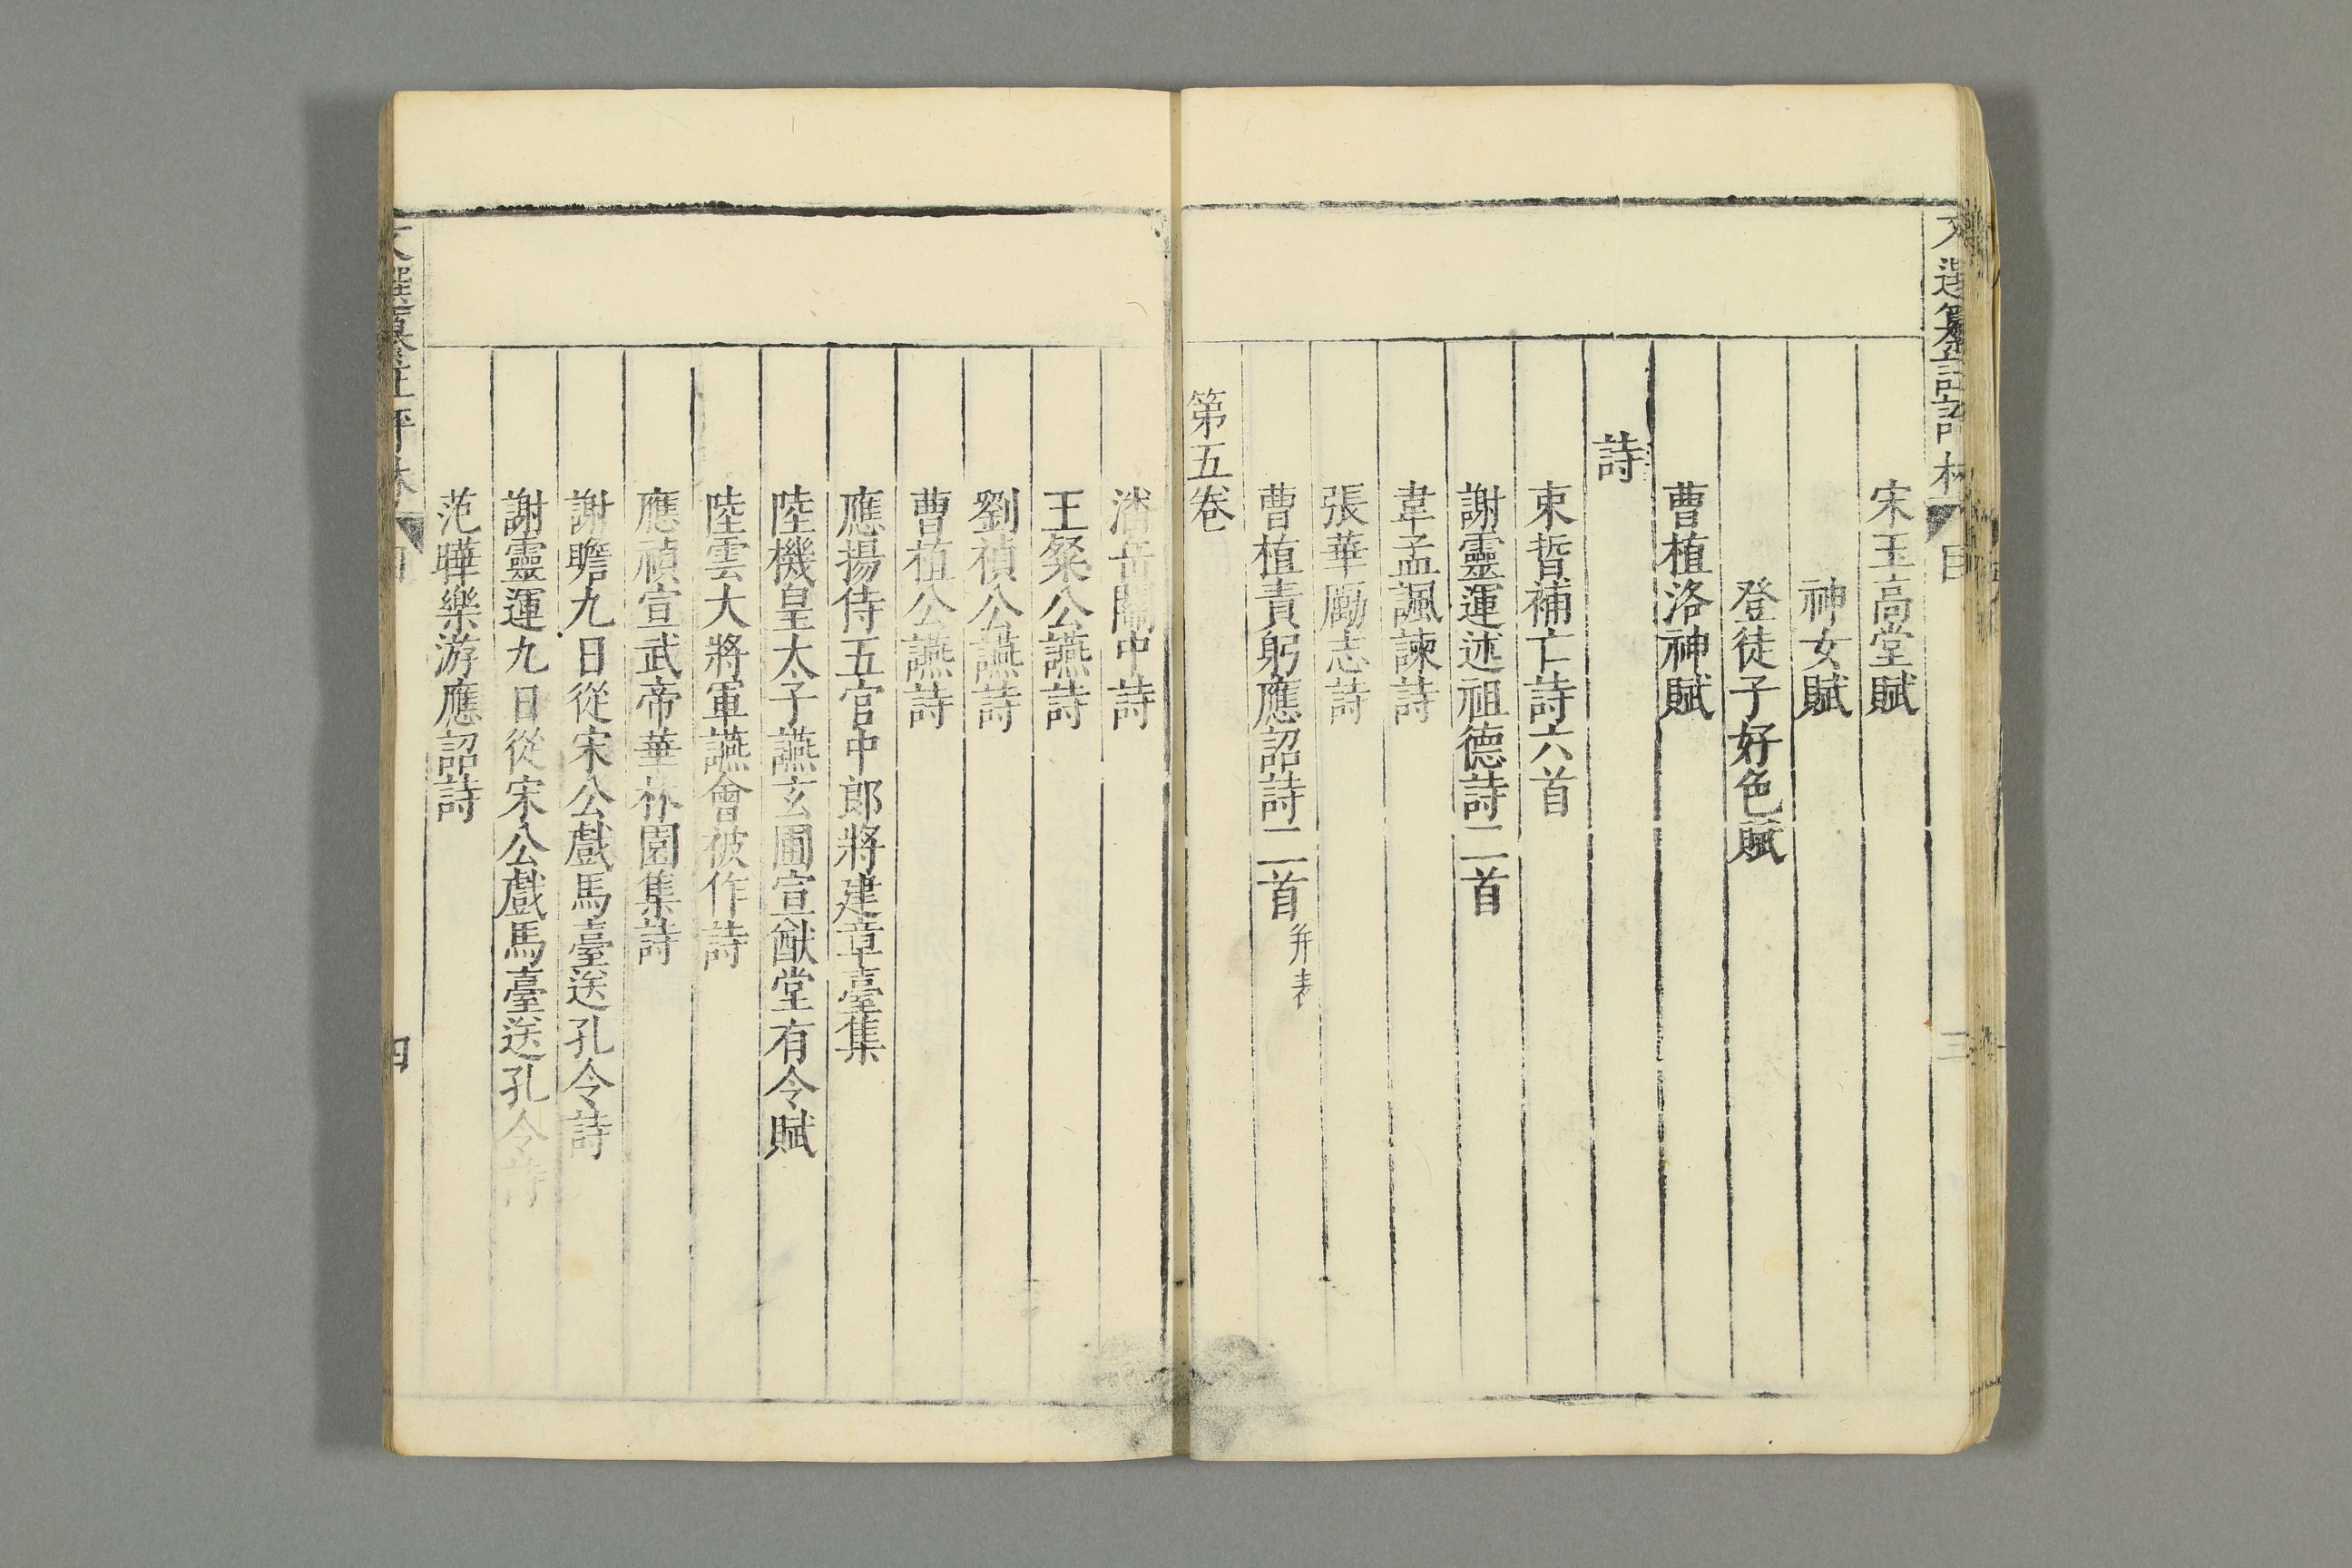 文選纂註評林 目 三
宋玉高堂賦
神女賦
登徒子好色賦
曹植洛神賦
詩
束晳補亡詩六首
謝靈運述祖德詩二首
韋孟諷諫詩
張華勵志詩
曹植責躬應詔詩二首并表
第五卷
潘岳關中詩
王粲公讌詩
劉禎公讌詩
曹植公讌詩
應揚侍五官中郎將建章臺集
陸機皇太子讌玄圃宣猷堂有令賦
陸雲大將軍讌會被作詩
應禎宣武帝華林園集詩
謝瞻九日從宋公戲馬臺送孔令詩
謝靈運九日從宋公戲馬臺送孔令詩
范曄樂游應詔詩
文選纂註評林 目 四